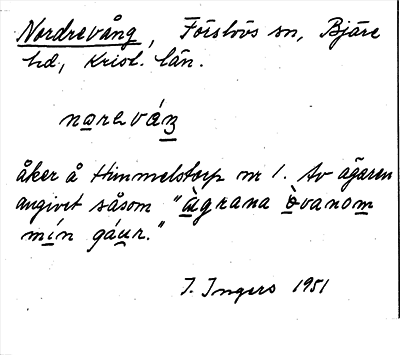 Nordrevång, Förslövs sn, Bjäre
hd, Krist. län.
narevá̱ŋ
åker å Himmelstorp nr 1. Av ägaren
angivet såsom "àgrana òvanom
min gáur."
I. Ingers 1951